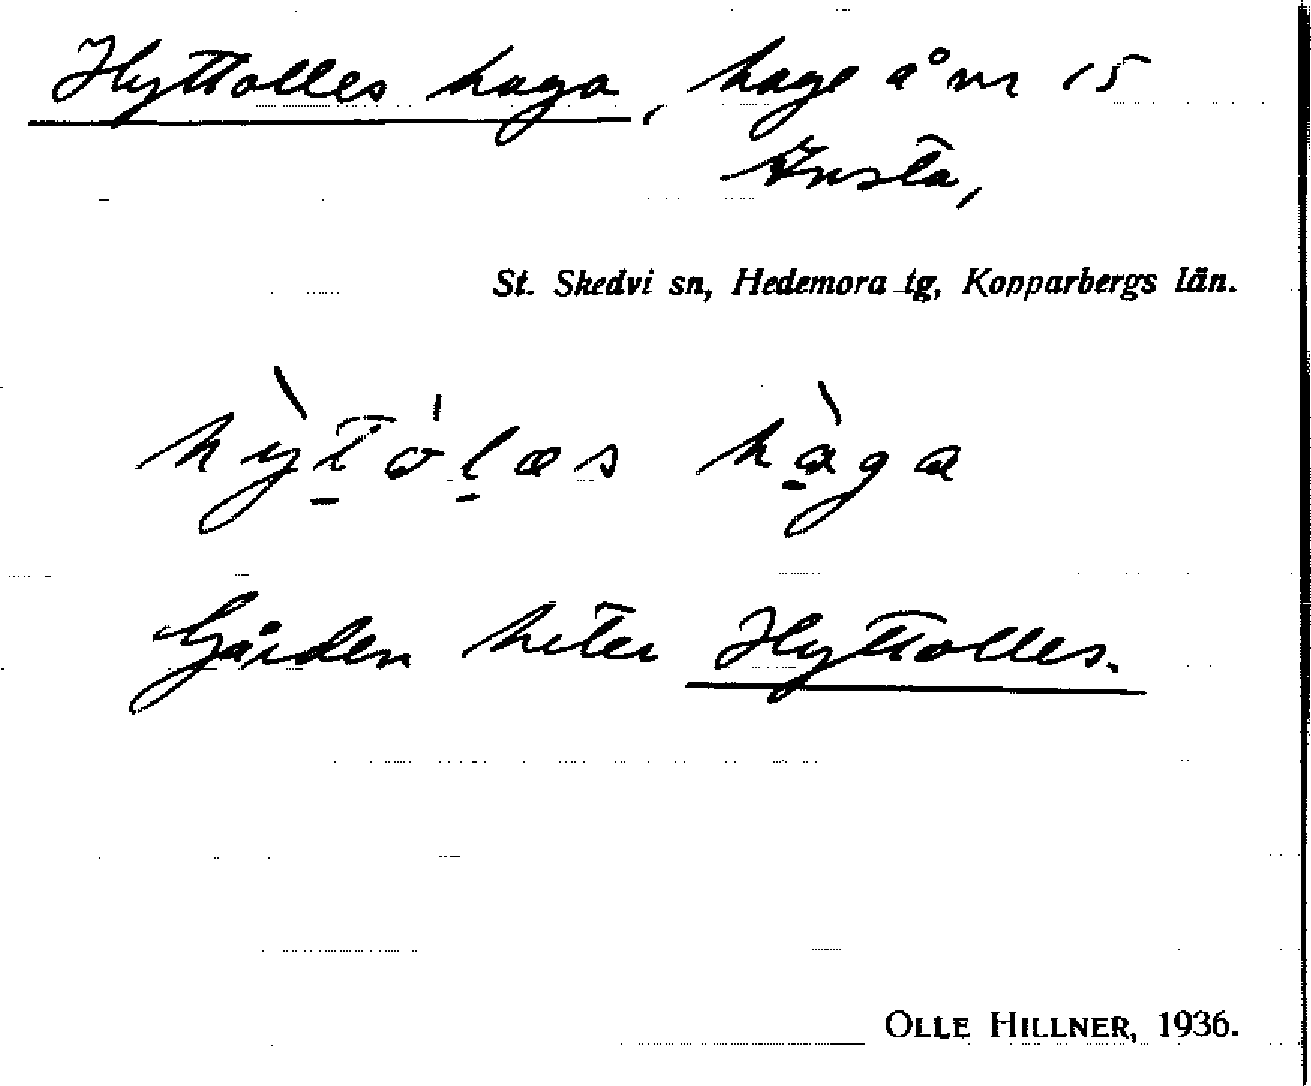 Hyttolles haga, hage å nr 15
Ånsta,
St. Skedvi sn, Hedemora tg, Kopparbergs län.
hỳt̠ólæs hàga
Gården heter Hyttolles.
OLLE HILLNER, 1936.